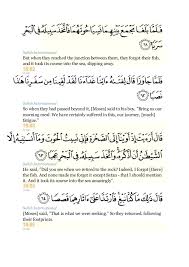 فَلَمَّا بَلَغَا مَجْمَعَ بَيْنِهِمَا نَسِيَا حُوتَهُمَا فَاتَّخَذَ سَبِيلَهُ فِي الْبَحْرِ
سَرَبًا ٦١
Sahih International
But when they reached the junction between them, they forgot their fish,
and it took its course into the sea, slipping away.
18:61
فَلَمَّا جَاوَزَا قَالَ لِفَتَاهُ آتِنَا غَدَاءَنَا لَقَدْ لَقِينَا مِنْ سَفَرِنَا هَٰذَا
نَصَبًا ٦٢
Sahih International
So when they had passed beyond it, [Moses] said to his boy, "Bring us our
morning meal. We have certainly suffered in this, our journey, [much]
fatigue."
18:62
قَالَ أَرَأَيْتَ إِذْ أَوَيْنَا إِلَى الصَّخْرَةِ فَإِنِّي نَسِيتُ الْحُوتَ وَمَا أَنْسَانِيهُ
إِلَّا الشَّيْطَانُ أَنْ أَذْكُرَهُ وَاتَّخَذَ سَبِيلَهُ فِي الْبَحْرِ عَجَبًا ٦٣
Sahih International
He said, "Did you see when we retired to the rock? Indeed, I forgot [there]
the fish. And none made me forget it except Satan - that I should mention
it. And it took its course into the sea amazingly".
18:63
قَالَ ذَٰلِكَ مَا كُنَّا نَبْغِ فَارْتَدَّا عَلَىٰ آثَارِهِمَا قَصَصًا ٦٤
Sahih International
[Moses] said, "That is what we were seeking." So they returned, following
their footprints.
18:64